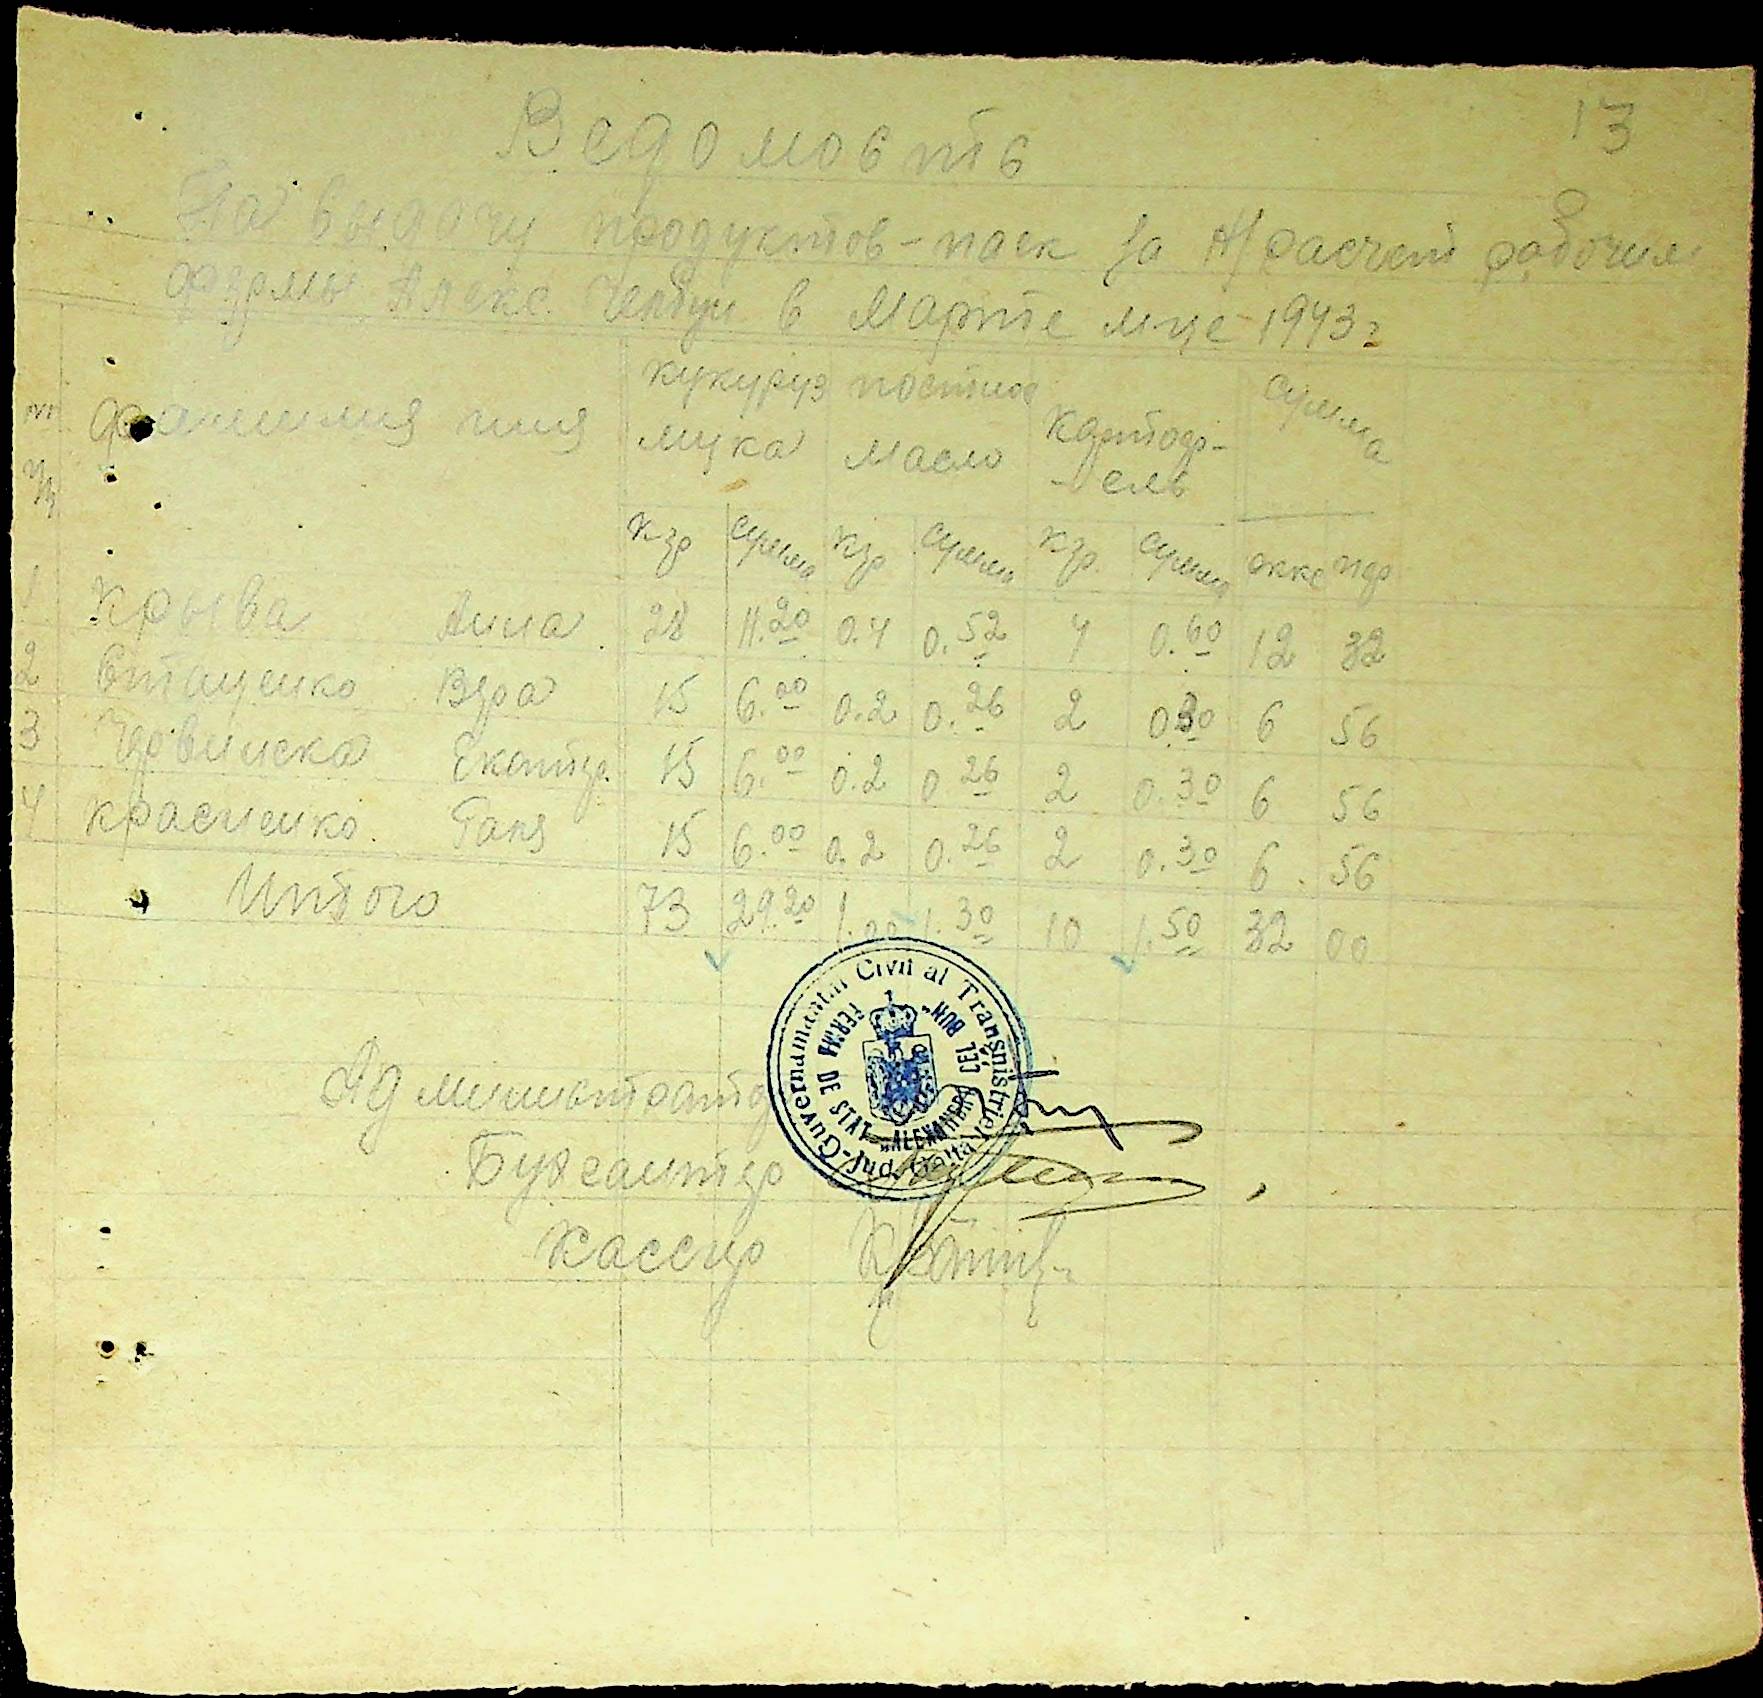 13
Ведомость
На выдачу продуктов-паек за н/расчет рабочим
фермы Алекс. Челбун в Марте м-це 1943 г
Фамилия имя кукуруз мука постное масло картоф-ель сумма
кгр сумма кгр сумма кгр. сумма окке пф
1 Крыва Анна 28 11.20 0.4 0.52 4 0.60 12 32
2 Стаценко Вера 15 6.00 0.2 0.26 2 0.30 6 56
3 Червинска Екатер. 15 6.00 0.2 0.26 2 0.30 6 56
4 Красненко Ганя 15 6.00 0.2 0.26 2 0.30 6 56
Итого 73 29.20 1.00 1.30 10 1.50 32 00
Guvernamantul Civil al Transnistriei
FERMA DE STAT „ALEXANDRU CEL BUN"
Администратор
Бухгалтер
Кассир